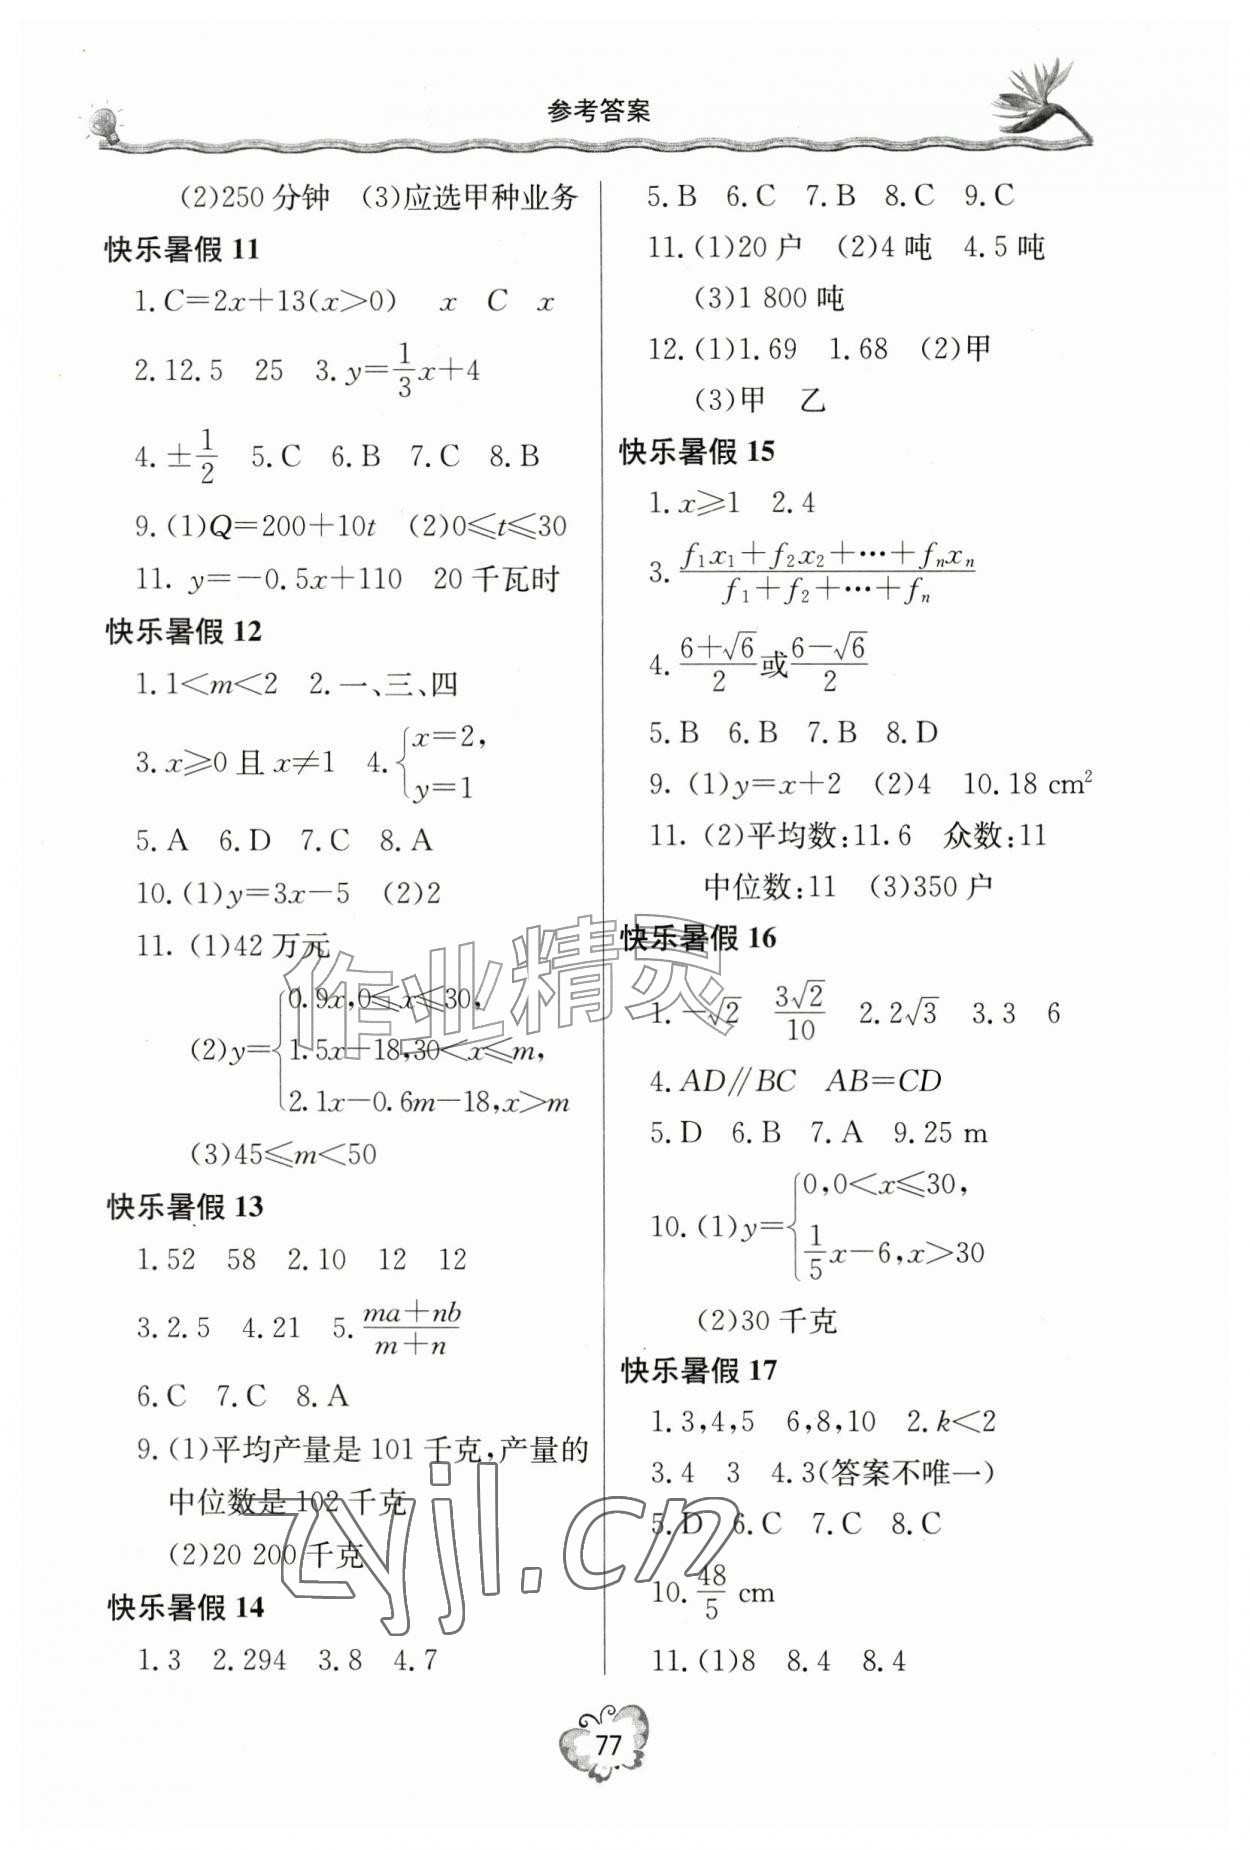 参考答案
(2)250分钟 (3)应选甲种业务
快乐暑假11
1. C=2x+13(x>0) x C x
2. 12.5 25 3. y=1/3x+4
4. ±1/2 5. C 6. B 7. C 8. B
9. (1)Q=200+10t (2)0≤t≤30
11. y=-0.5x+110 20千瓦时
快乐暑假12
1. 1<m<2 2. 一、三、四
3. x≥0且x≠1 4. {x=2, y=1
5. A 6. D 7. C 8. A
10. (1)y=3x-5 (2)2
11. (1)42万元
(2)y={0.9x,0≤x≤30,
1.5x-18,30<x≤m,
2.1x-0.6m-18,x>m
(3)45≤m<50
快乐暑假13
1. 52 58 2. 10 12 12
3. 2.5 4. 21 5. (ma+nb)/(m+n)
6. C 7. C 8. A
9. (1)平均产量是101千克,产量的
中位数是102千克
(2)20 200千克
快乐暑假14
1. 3 2. 294 3. 8 4. 7
5. B 6. C 7. B 8. C 9. C
11. (1)20户 (2)4吨 4.5吨
(3)1 800吨
12. (1)1.69 1.68 (2)甲
(3)甲 乙
快乐暑假15
1. x≥1 2. 4
3. (f₁x₁+f₂x₂+⋯+fₙxₙ)/(f₁+f₂+⋯+fₙ)
4. (6+√6)/2或(6-√6)/2
5. B 6. B 7. B 8. D
9. (1)y=x+2 (2)4 10. 18 cm²
11. (2)平均数:11.6 众数:11
中位数:11 (3)350户
快乐暑假16
1. -√2 3√2/10 2. 2√3 3. 3 6
4. AD∥BC AB=CD
5. D 6. B 7. A 9. 25 m
10. (1)y={0,0<x≤30,
1/5x-6,x>30
(2)30千克
快乐暑假17
1. 3,4,5 6,8,10 2. k<2
3. 4 3 4. 3(答案不唯一)
5. D 6. C 7. C 8. C
10. 48/5 cm
11. (1)8 8.4 8.4
77
作业精灵
zyjl.cn